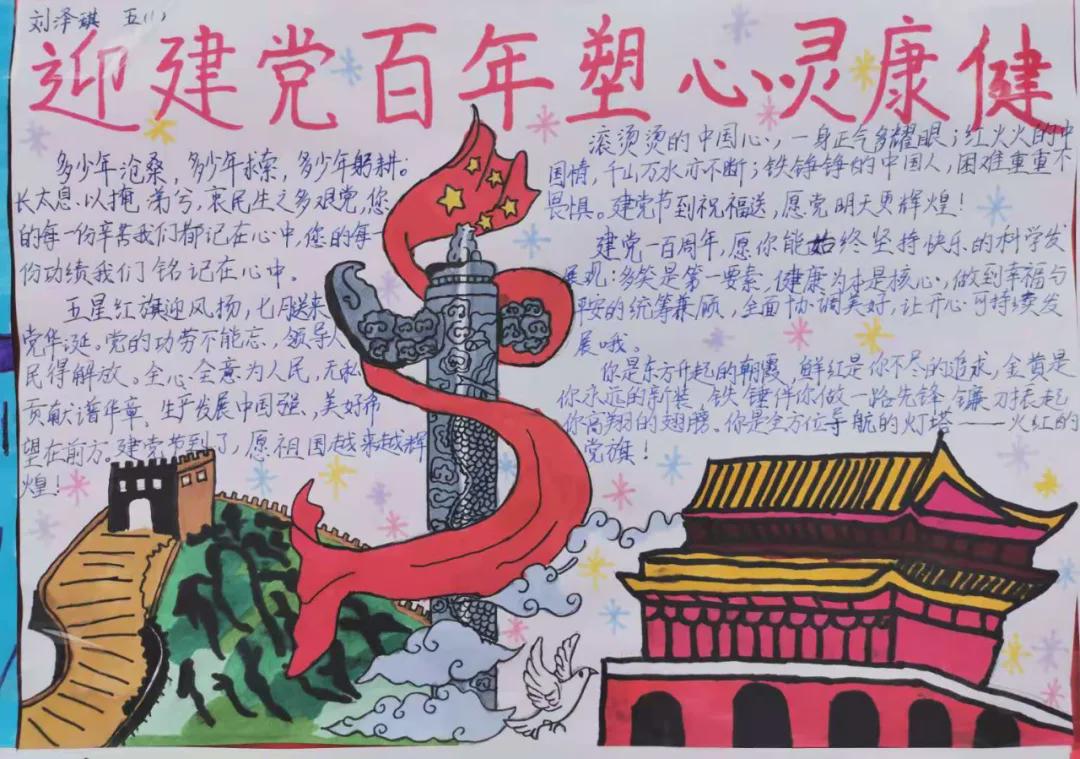 刘泽琪 五(1)
迎建党百年塑心灵康健
多少年沧桑，多少年求索，多少年躬耕。
长太息以掩涕兮，哀民生之多艰党，您
的每一份辛苦我们都记在心中，您的每一
份功绩我们铭记在心中。
五星红旗迎风扬，七月送来
党华诞。党的功劳不能忘，领导人
民得解放。全心全意为人民，无私
贡献谱华章。生产发展中国强，美好希
望在前方。建党节到了，愿祖国越来越辉
煌！
滚烫烫的中国心，一身正气多耀眼；红火火的中
国情，千山万水亦不断；铁铮铮的中国人，困难重重不
畏惧。建党节到祝福送，愿党明天更辉煌！
建党一百周年，愿你能始终坚持快乐的科学发
展观：多笑是第一要素，健康为本是核心，做到幸福与
平安的统筹兼顾，全面协调美好，让开心可持续发
展哦。
你是东方升起的朝霞，鲜红是你不尽的追求，金黄是
你永远的新装，铁锤伴你做一路先锋，镰刀振起
你高翔的翅膀。你是全方位导航的灯塔——火红的
党旗！